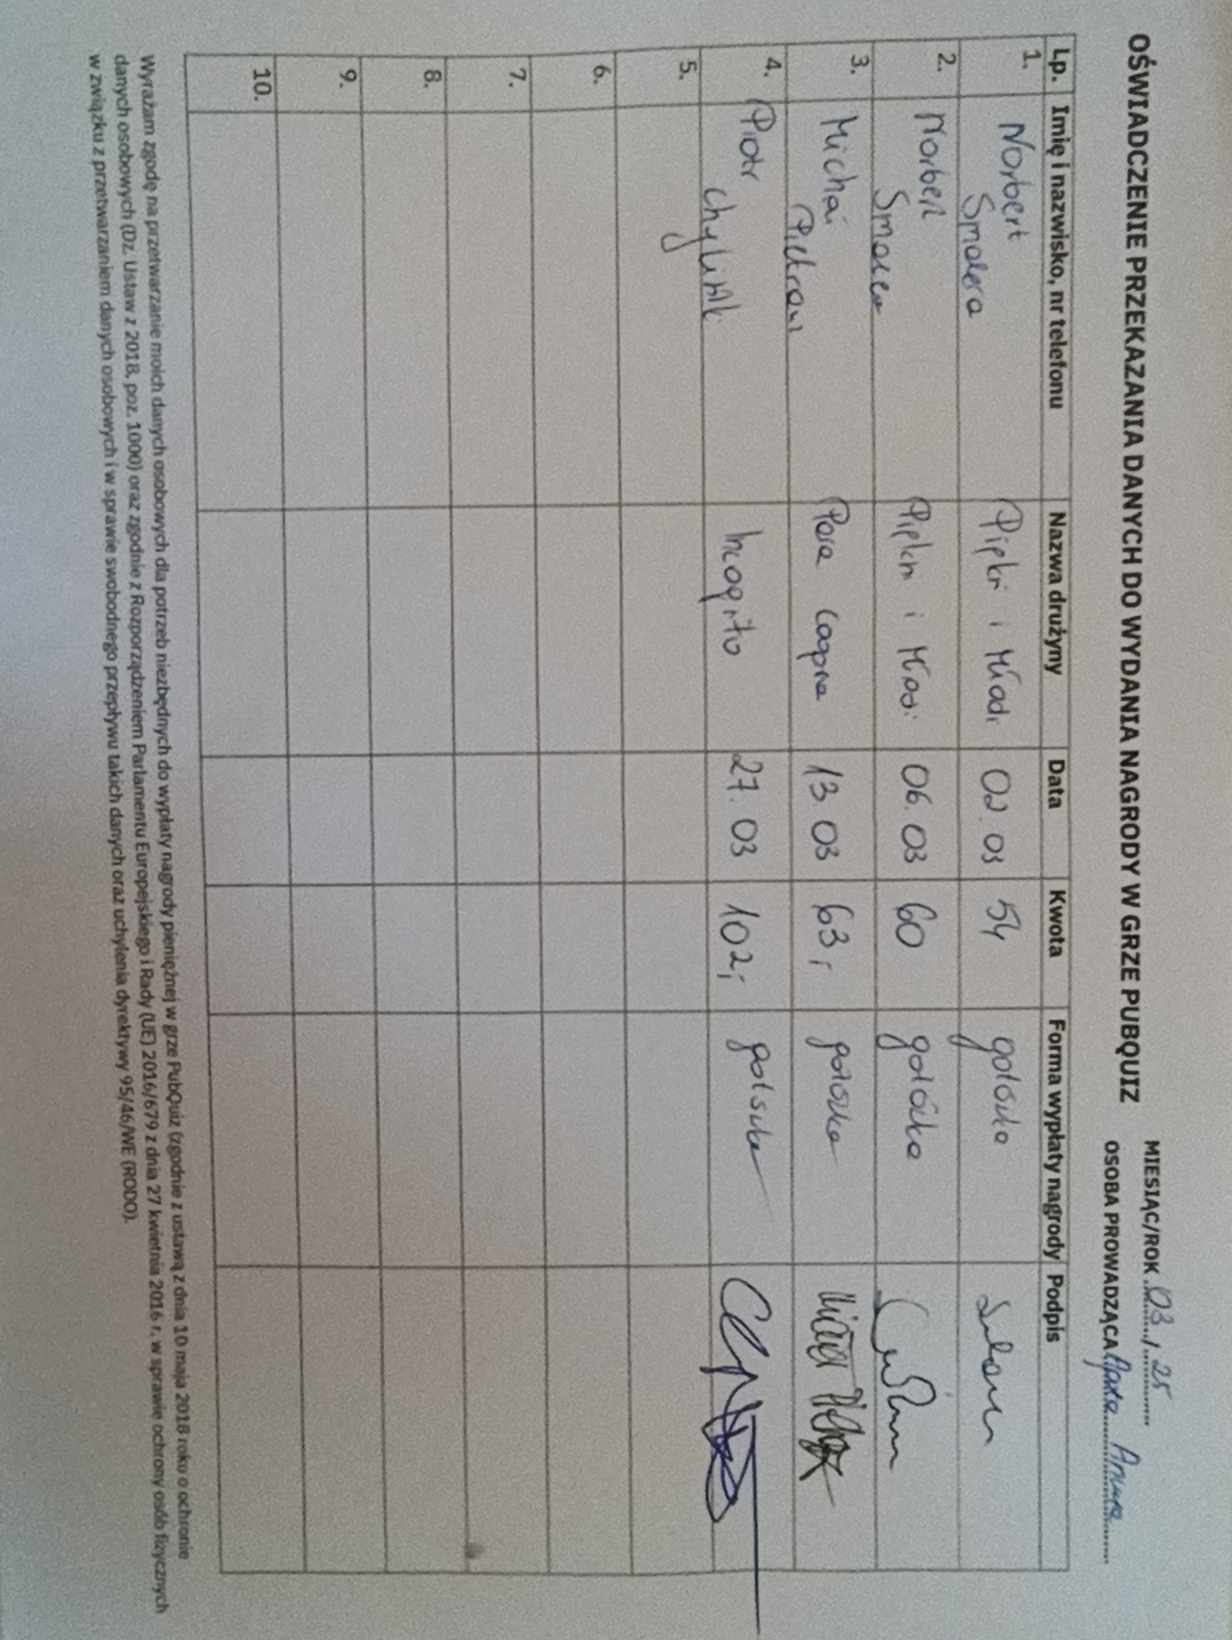 OŚWIADCZENIE PRZEKAZANIA DANYCH DO WYDANIA NAGRODY W GRZE PUBQUIZ
MIESIĄC/ROK 03 / 25
OSOBA PROWADZĄCA
Lp. Imię i nazwisko, nr telefonu Nazwa drużyny Data Kwota Forma wypłaty nagrody Podpis
1. Norbert Smolera Piękni i Młodzi 02.03 54 gotówka
2. Norbert Piękni i Młodzi 06.03 60 gotówka
3. Michał Para 13 03 63,- gotówka
4. Piotr Chyliński Incognito 27.03 102,- gotówka
5.
6.
7.
8.
9.
10.
Wyrażam zgodę na przetwarzanie moich danych osobowych dla potrzeb niezbędnych do wypłaty nagrody pieniężnej w grze PubQuiz (zgodnie z ustawą z dnia 10 maja 2018 roku o ochronie
danych osobowych (Dz. Ustaw z 2018, poz. 1000) oraz zgodnie z Rozporządzeniem Parlamentu Europejskiego i Rady (UE) 2016/679 z dnia 27 kwietnia 2016 r. w sprawie ochrony osób fizycznych
w związku z przetwarzaniem danych osobowych i w sprawie swobodnego przepływu takich danych oraz uchylenia dyrektywy 95/46/WE (RODO).